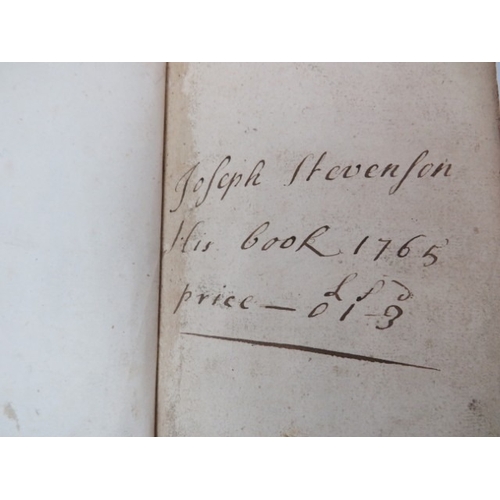 Joſeph Stevenſon
His book 1765
£ s d
price — 0 1-3